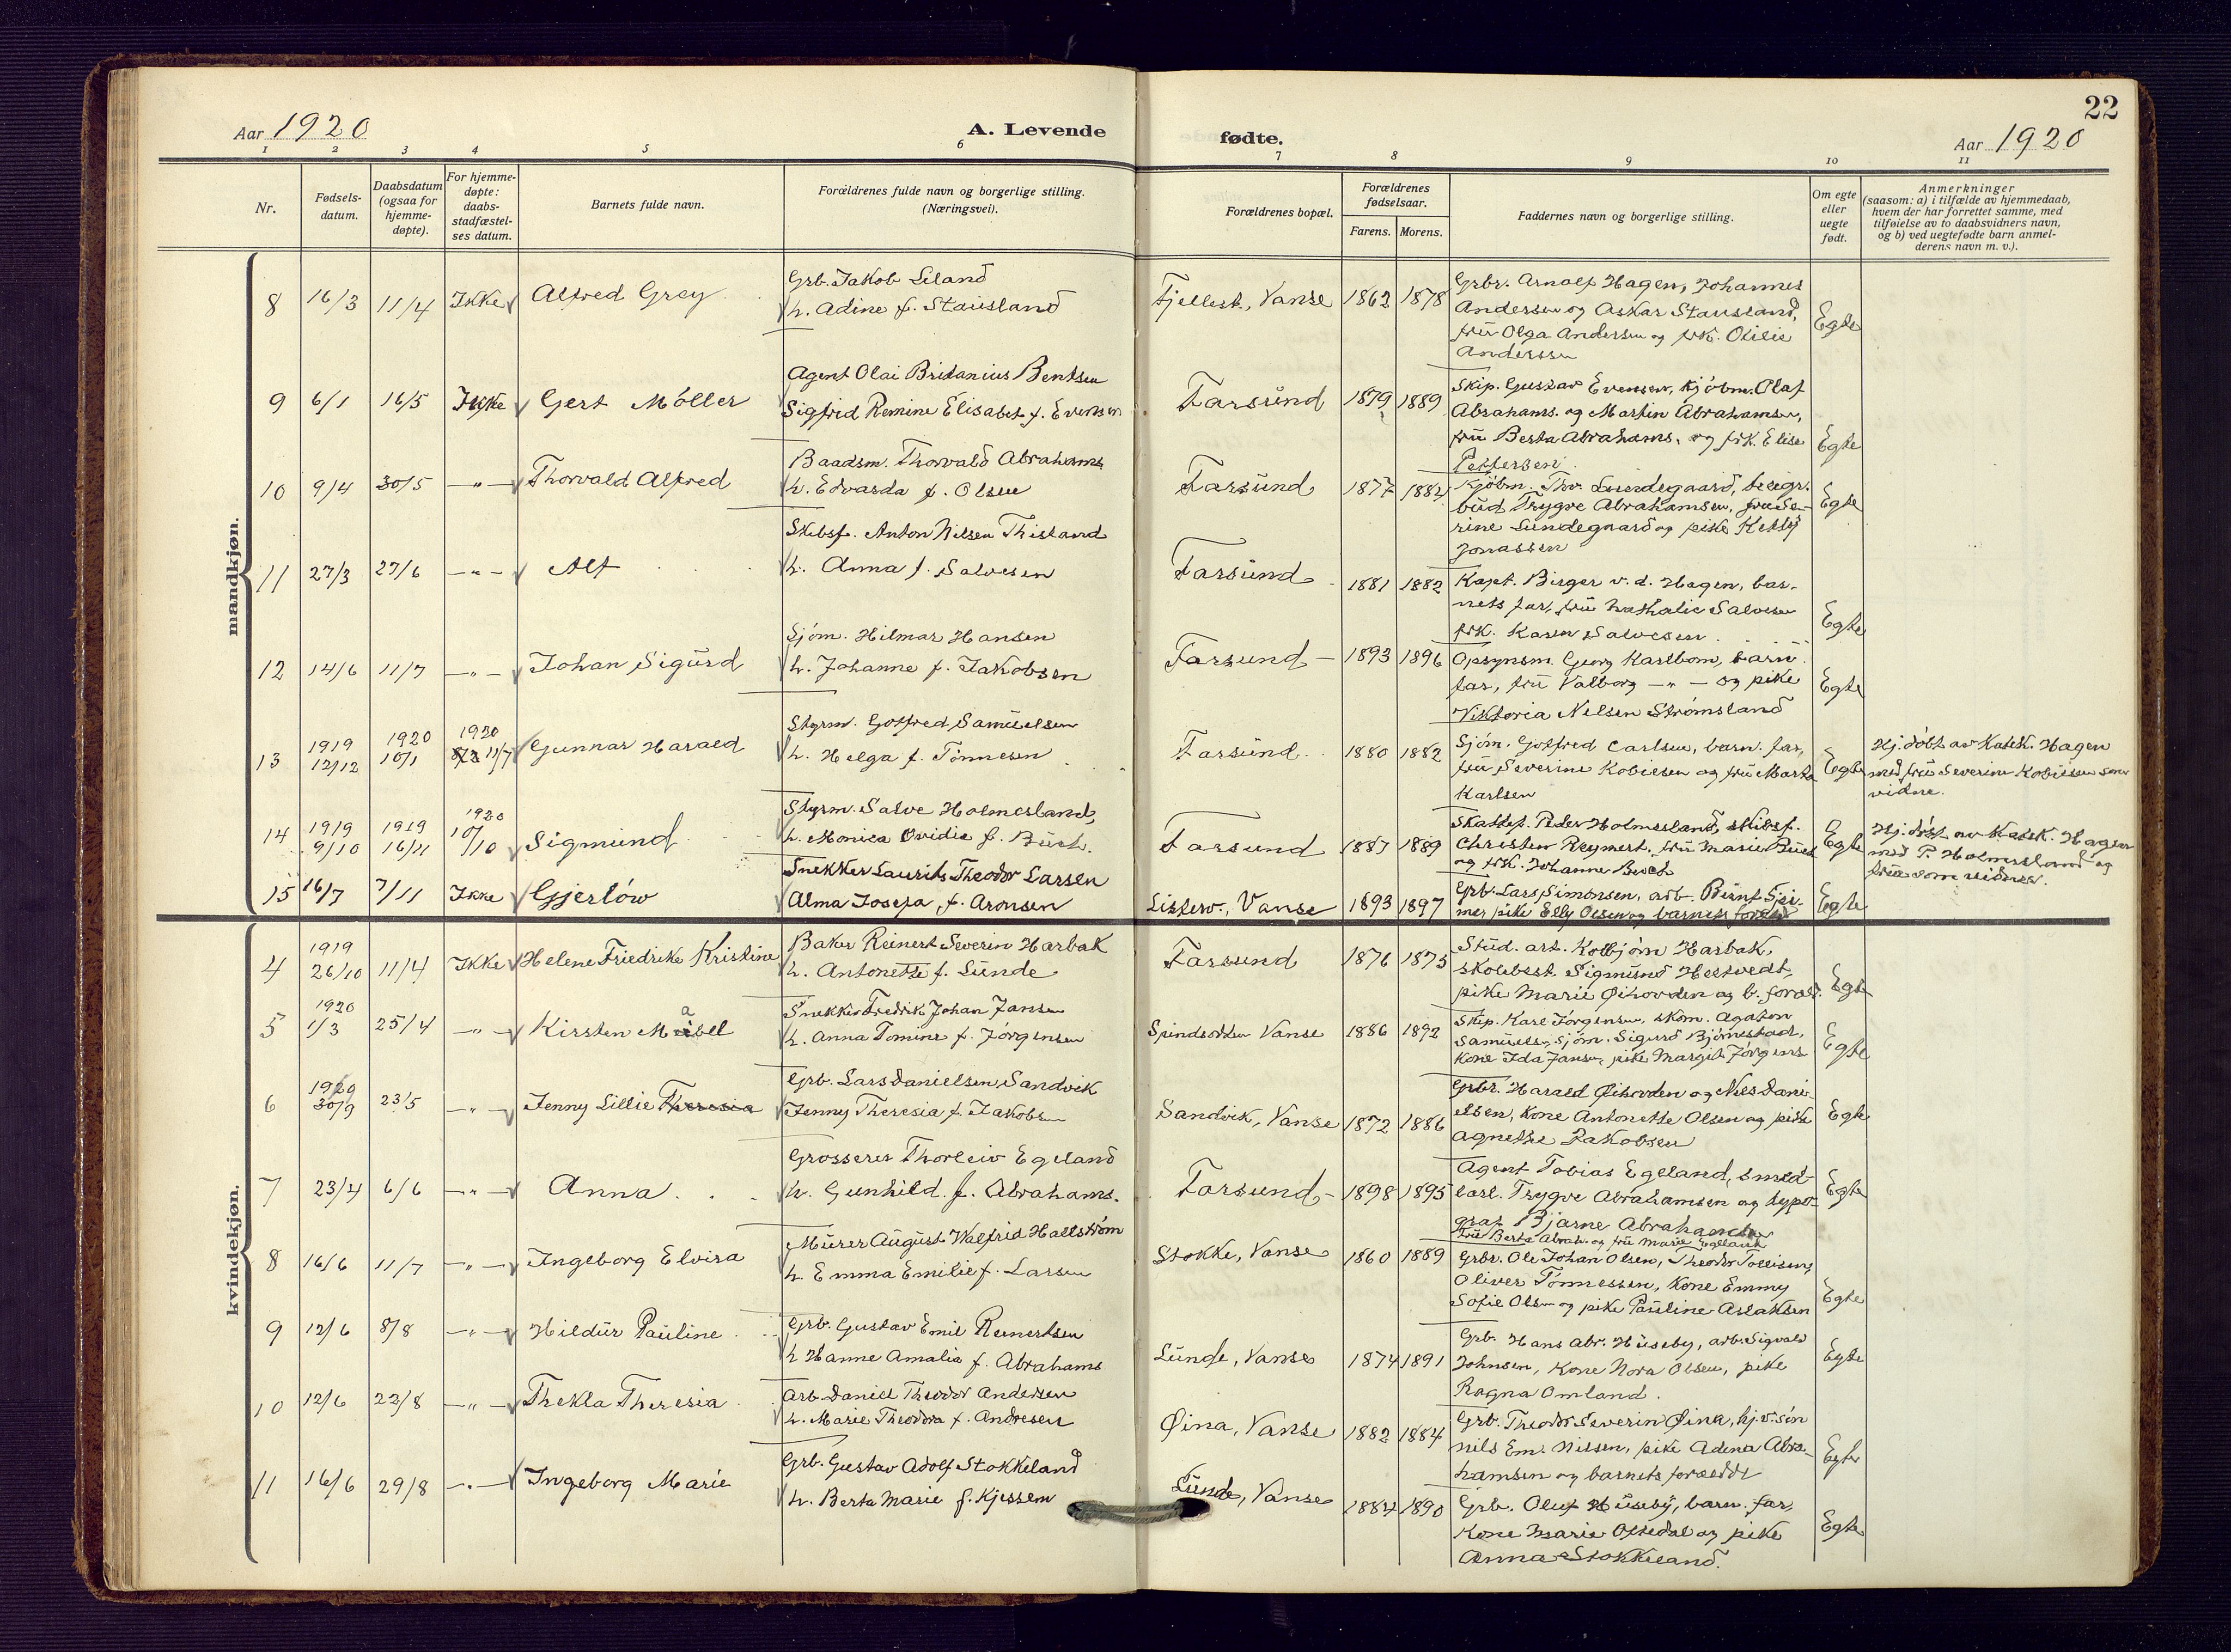 22
Aar 1920
A. Levende
fødte.
Aar 1920
1 2 3 4 5 6 7 8 9 10 11
Nr.
Fødsels-
datum.
Daabsdatum
(ogsaa for
hjemme-
døpte).
For hjemme-
døpte:
daabs-
stadfæstel-
ses datum.
Barnets fulde navn.
Forældrenes fulde navn og borgerlige stilling.
(Næringsvei).
Forældrenes bopæl.
Forældrenes
fødselsaar.
Farens. Morens.
Faddernes navn og borgerlige stilling.
Om egte
eller
uegte
født.
Anmerkninger
(saasom: a) i tilfælde av hjemmedaab,
hvem der har forrettet samme, med
tilføielse av to daabsvidners navn,
og b) ved uegtefødte barn anmel-
derens navn m. v.).
mandkjøn.
8 16/3 11/4 Ikke Alfred Grey
Grb. Jakob Leland
h. Adine f. Stausland
Fjellest., Vanse 1862 1878
Grbr. Arnolf Hagen, Johannes
Andersen og Askar Stausland,
frü Olga Andersen og frk. Otilie
Anderssen
Egte
9 6/1 16/5 Ikke Gert Möller
Agent Olai Britanius Bentsen
Sigfrid Remine Elisabet f. Evensen
Farsünd 1879 1889
Skip. Gustav Evensen, kjöbm. Olaf
Abrahams. og Martin Abrahamsen,
frü Berta Abrahams. og frk. Elise
Pettersen
Egte
10 9/4 30/5 -„- Thorvald Alfred
Baadsm. Thorvald Abrahams
h. Edvarda f. Olsen
Farsünd 1877 1882
Kjöbm. Thv. Lundegaard, telegr.
büd Trygve Abrahamsen, frü Se-
rine Lundegaard og pike Ketty
Jonassen
Egte
11 27/3 27/6 -„- Alf
Skibsf. Anton Nilsen Thistand
h. Anna f. Salvesen
Farsünd 1881 1882
Kapt. Birger v. d. Hagen, bar-
nets far, frü Nathalie Salvesen
frk. Karen Salvesen
Egte
12 14/6 11/7 -„- Johan Sigürd
Sjöm. Hilmar Hansen
h. Johanne f. Jakobsen
Farsund 1893 1896
Opsynsm. Georg Karlbom, barn.
far, frü Valborg -„- og pike
Viktoria Nelsen Strömsland
Egte
13 1919 12/12 1920 10/1 1920 11/7 Gunnar Harald
Styrm. Gotfred Samüelsen
h. Helga f. Tönnesen
Farsünd 1880 1882
Sjöm. Gotfred Carlsen, barn. far,
frü Severine Kobiesen og frü Marta
Karlsen
Egte
Hj. döbt av Katek. Hagen
med frü Severine Kobiesen som
vidne.
14 1919 9/10 1919 16/11 1920 10/10 Sigmund
Styrm. Salve Holmesland,
h. Monica Ovidie f. Büch.
Farsund 1887 1889
Skattef. Peder Holmesland, skibsf.
Christen Reymert, frü Marie Büch
og frk. Johanne Büch
Egte
Hj. döbt av Katek. Hagen
med P. Holmesland og
frue som vidner.
15 16/7 7/11 Ikke Gjerlöw
Snekker Laurits Theodor Larsen
Alma Josefa, f. Aronsen
Listerv., Vanse 1893 1897
Grb. Lars Simonsen, arb. Bernt
pike Elly Olsen og barnets foreldr
Egte
kvindekjøn.
4 1919 26/10 11/4 Ikke Helene Friedrike Kristine
Baker Reinert Severin Harbak
h. Antonette f. Lünde
Farsund 1876 1875
Stüd. art. Kolbjörn Harbak,
skolebest. Sigmünd Hestvedt,
pike Marie Øihovden og b. foræl.
Egte
5 1920 1/3 25/4 -„- Kirsten Mabel
Snekker Fredrik Johan Jansen
h. Anna Tomine f. Jörgensen
Spindsodden Vanse 1886 1892
Skip. Karl Jörgensen, skom. Agaton
Samüels., sjöm. Sigurd Björnestad,
kone Ida Jansen, pike Margit Jörgens
Egte
6 1919 30/9 23/5 -„- Jenny Lillie Theresia
Grb. Lars Danielsen Sandvik
Jenny Theresia f. Jakobsen
Sandvik, Vanse 1872 1886
Grbr. Harald Øihovden og Nils Dani-
elsen, kone Antonette Olsen og pike
Agnethe Jakobsen
Egte
7 23/4 6/6 -„- Anna
Grosserer Thorleiv Egeland
h. Gunhild f. Abrahams.
Farsund 1898 1895
Agent Tobias Egeland, smed-
lærl. Trygve Abrahamsen og typo-
graf Bjarne Abrahamsen
frü Berta Abrah. og frü Marie Egeland
Egte
8 16/6 11/7 -„- Ingeborg Elvira
Mürer Aügüst Walfrid Hallström
h. Emma Emilie f. Larsen
Stokke, Vanse 1860 1889
Grbr. Ole Johan Olsen, Theodor Tollisen,
Oliver Tönnessen, kone Emmy
Sofie Olsen og pike Paüline Aslaksen
Egte
9 12/6 8/8 -„- Hildür Paüline
Grb. Gustav Emil Reinertsen
h. Hanne Amalia f. Abrahams
Lünde, Vanse 1874 1891
Grb. Hans Abr. Hüseby, arb. Sigvald
Johnsen, kone Nora Olsen, pike
Ragna Omland.
Egte
10 12/6 22/8 -„- Thekla Theresia
Arb. Daniel Theodor Andersen
h. Marie Theodora f. Andresen
Øina, Vanse 1882 1884
Grb. Theodor Severin Øina, hj.v. sön
Nils Em. Nilsen, pike Adena Abra-
hamsen og barnets foreldre
Egte
11 16/6 29/8 -„- Ingeborg Marie
Grb. Gustav Adolf Stokkeland
h. Berta Marie f. Kjessem
Lünde, Vanse 1884 1890
Grb. Oluf Hüseby, barn. far,
kone Marie Olsedal og pike
Anna Stokkeland.
Egte